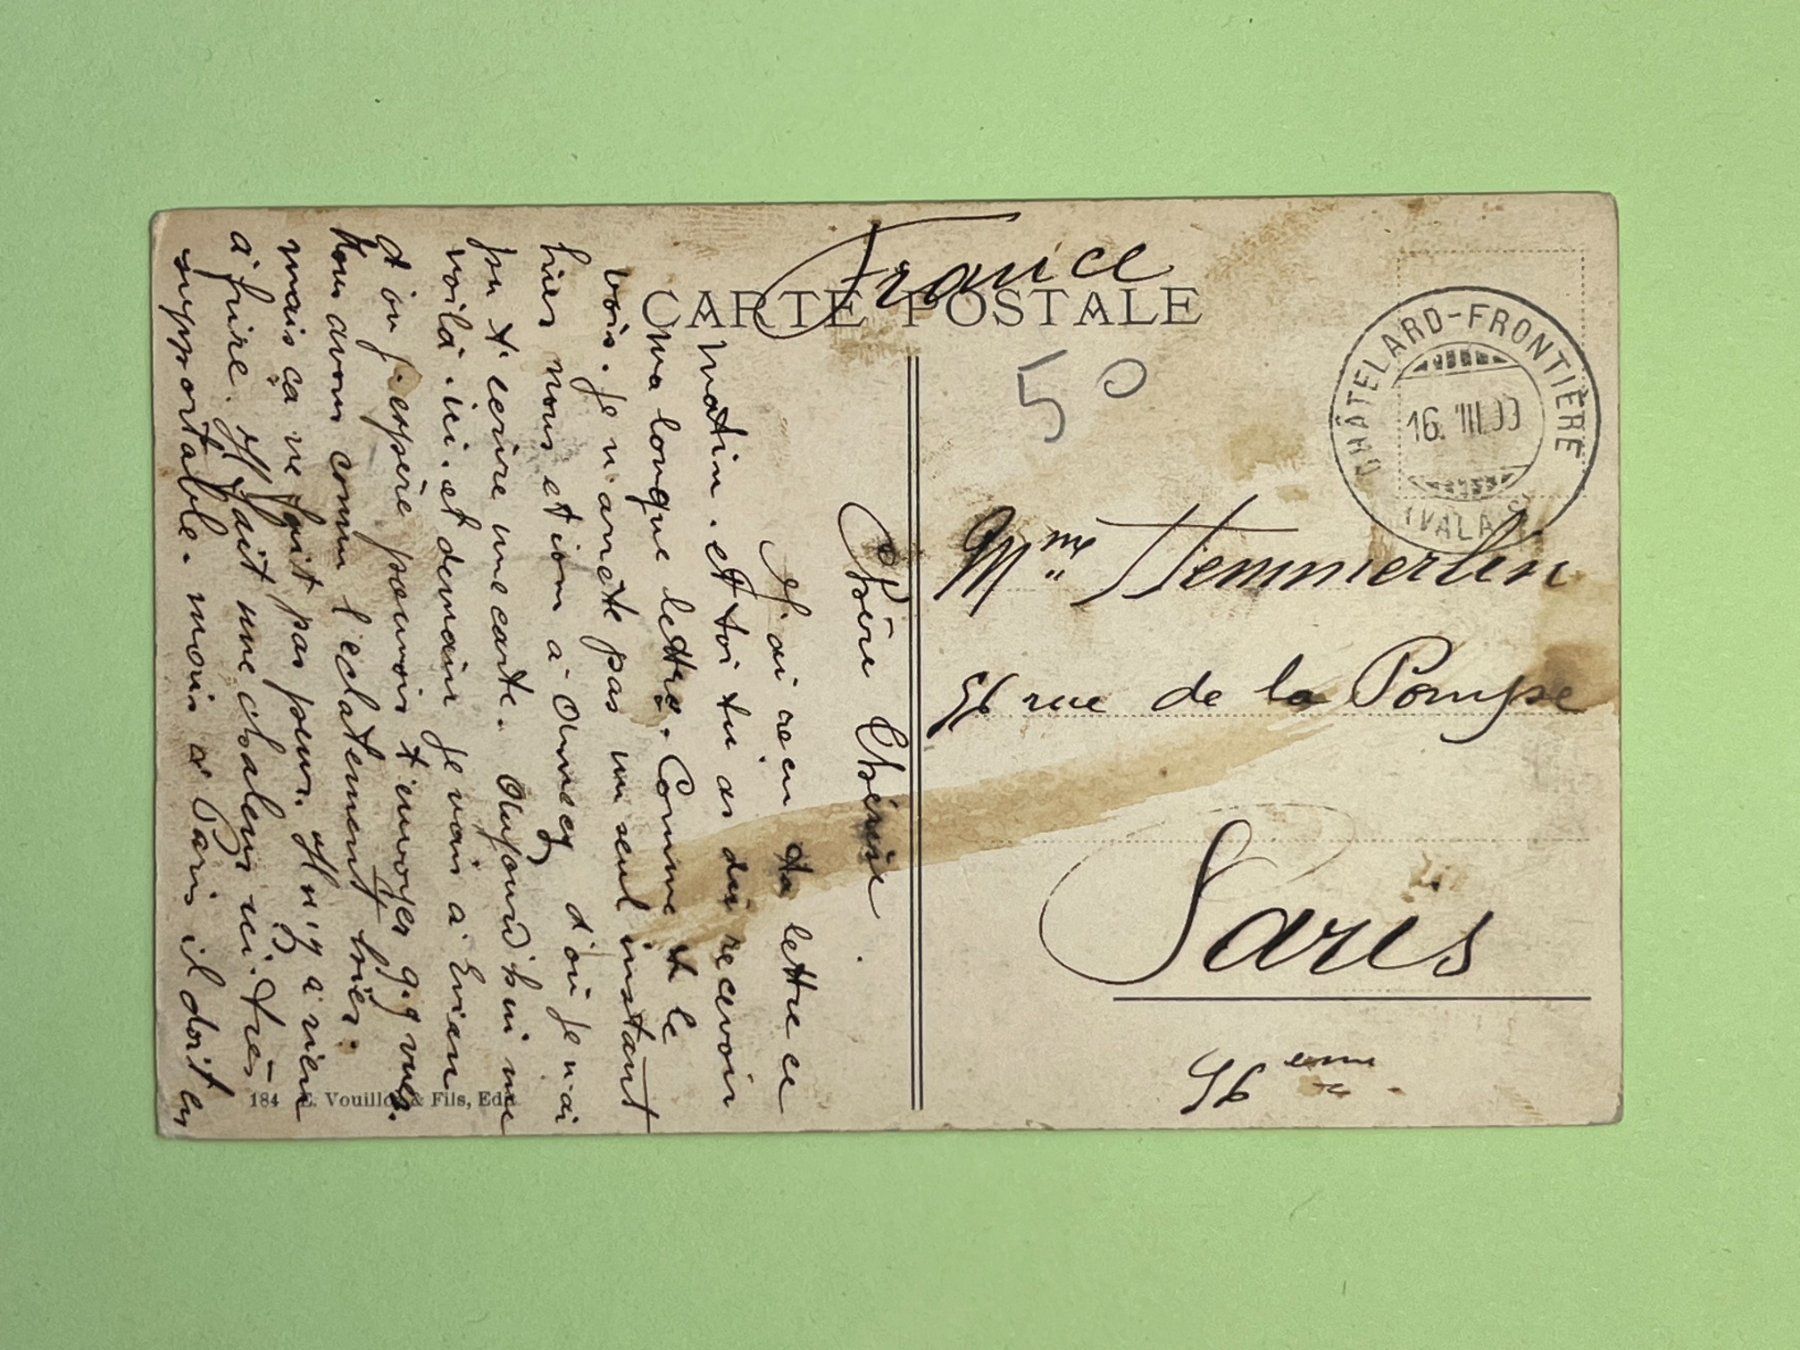 France
CARTE POSTALE
50
CHÂTELARD-FRONTIÈRE
16. VIII.09
(VALAIS)
Mme Hemmerlin
96 rue de la Pompe
Paris
96eme
Chère Thérèse
J'ai reçu ta lettre ce
matin. et toi tu as du recevoir
ma longue lettre. Comme tu le
vois. je n'arrete pas un seul instant
hier nous etions à Annecy d'où je n'ai
pu t'ecrire une carte. Aujourd'hui me
voilà ici. et demain je vais à Evian
d'où j'espère pouvoir t'envoyer q.q vues.
Nous avons connu l'eclatement hier.
mais ca ne fait pas peur. Il n'y a rien
à faire. Il fait une chaleur ici. très
supportable. mais à Paris il doit
184 E. Vouilloz & Fils, Edit.